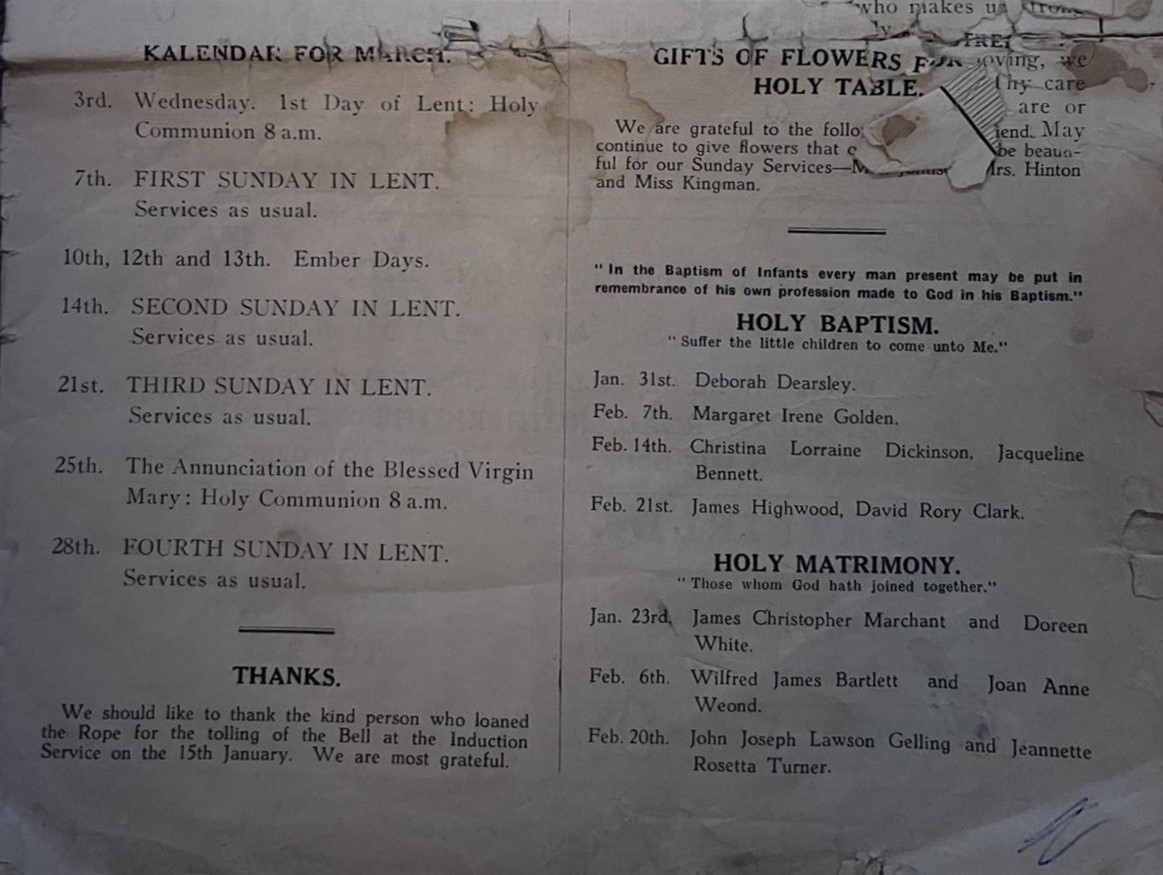 KALENDAR FOR MARCH.
3rd. Wednesday. 1st Day of Lent: Holy
Communion 8 a.m.
7th. FIRST SUNDAY IN LENT.
Services as usual.
10th, 12th and 13th. Ember Days.
14th. SECOND SUNDAY IN LENT.
Services as usual.
21st. THIRD SUNDAY IN LENT.
Services as usual.
25th. The Annunciation of the Blessed Virgin
Mary: Holy Communion 8 a.m.
28th. FOURTH SUNDAY IN LENT.
Services as usual.
THANKS.
We should like to thank the kind person who loaned
the Rope for the tolling of the Bell at the Induction
Service on the 15th January. We are most grateful.
who makes us
GIFTS OF FLOWERS FOR
HOLY TABLE.
we
Thy care
are or
We are grateful to the
May
continue to give flowers that
be
ful for our Sunday Services—
Hinton
and Miss Kingman.
"In the Baptism of Infants every man present may be put in
remembrance of his own profession made to God in his Baptism."
HOLY BAPTISM.
"Suffer the little children to come unto Me."
Jan. 31st. Deborah Dearsley.
Feb. 7th. Margaret Irene Golden.
Feb. 14th. Christina Lorraine Dickinson, Jacqueline
Bennett.
Feb. 21st. James Highwood, David Rory Clark.
HOLY MATRIMONY.
"Those whom God hath joined together."
Jan. 23rd. James Christopher Marchant and Doreen
White.
Feb. 6th. Wilfred James Bartlett and Joan Anne
Weond.
Feb. 20th. John Joseph Lawson Gelling and Jeannette
Rosetta Turner.